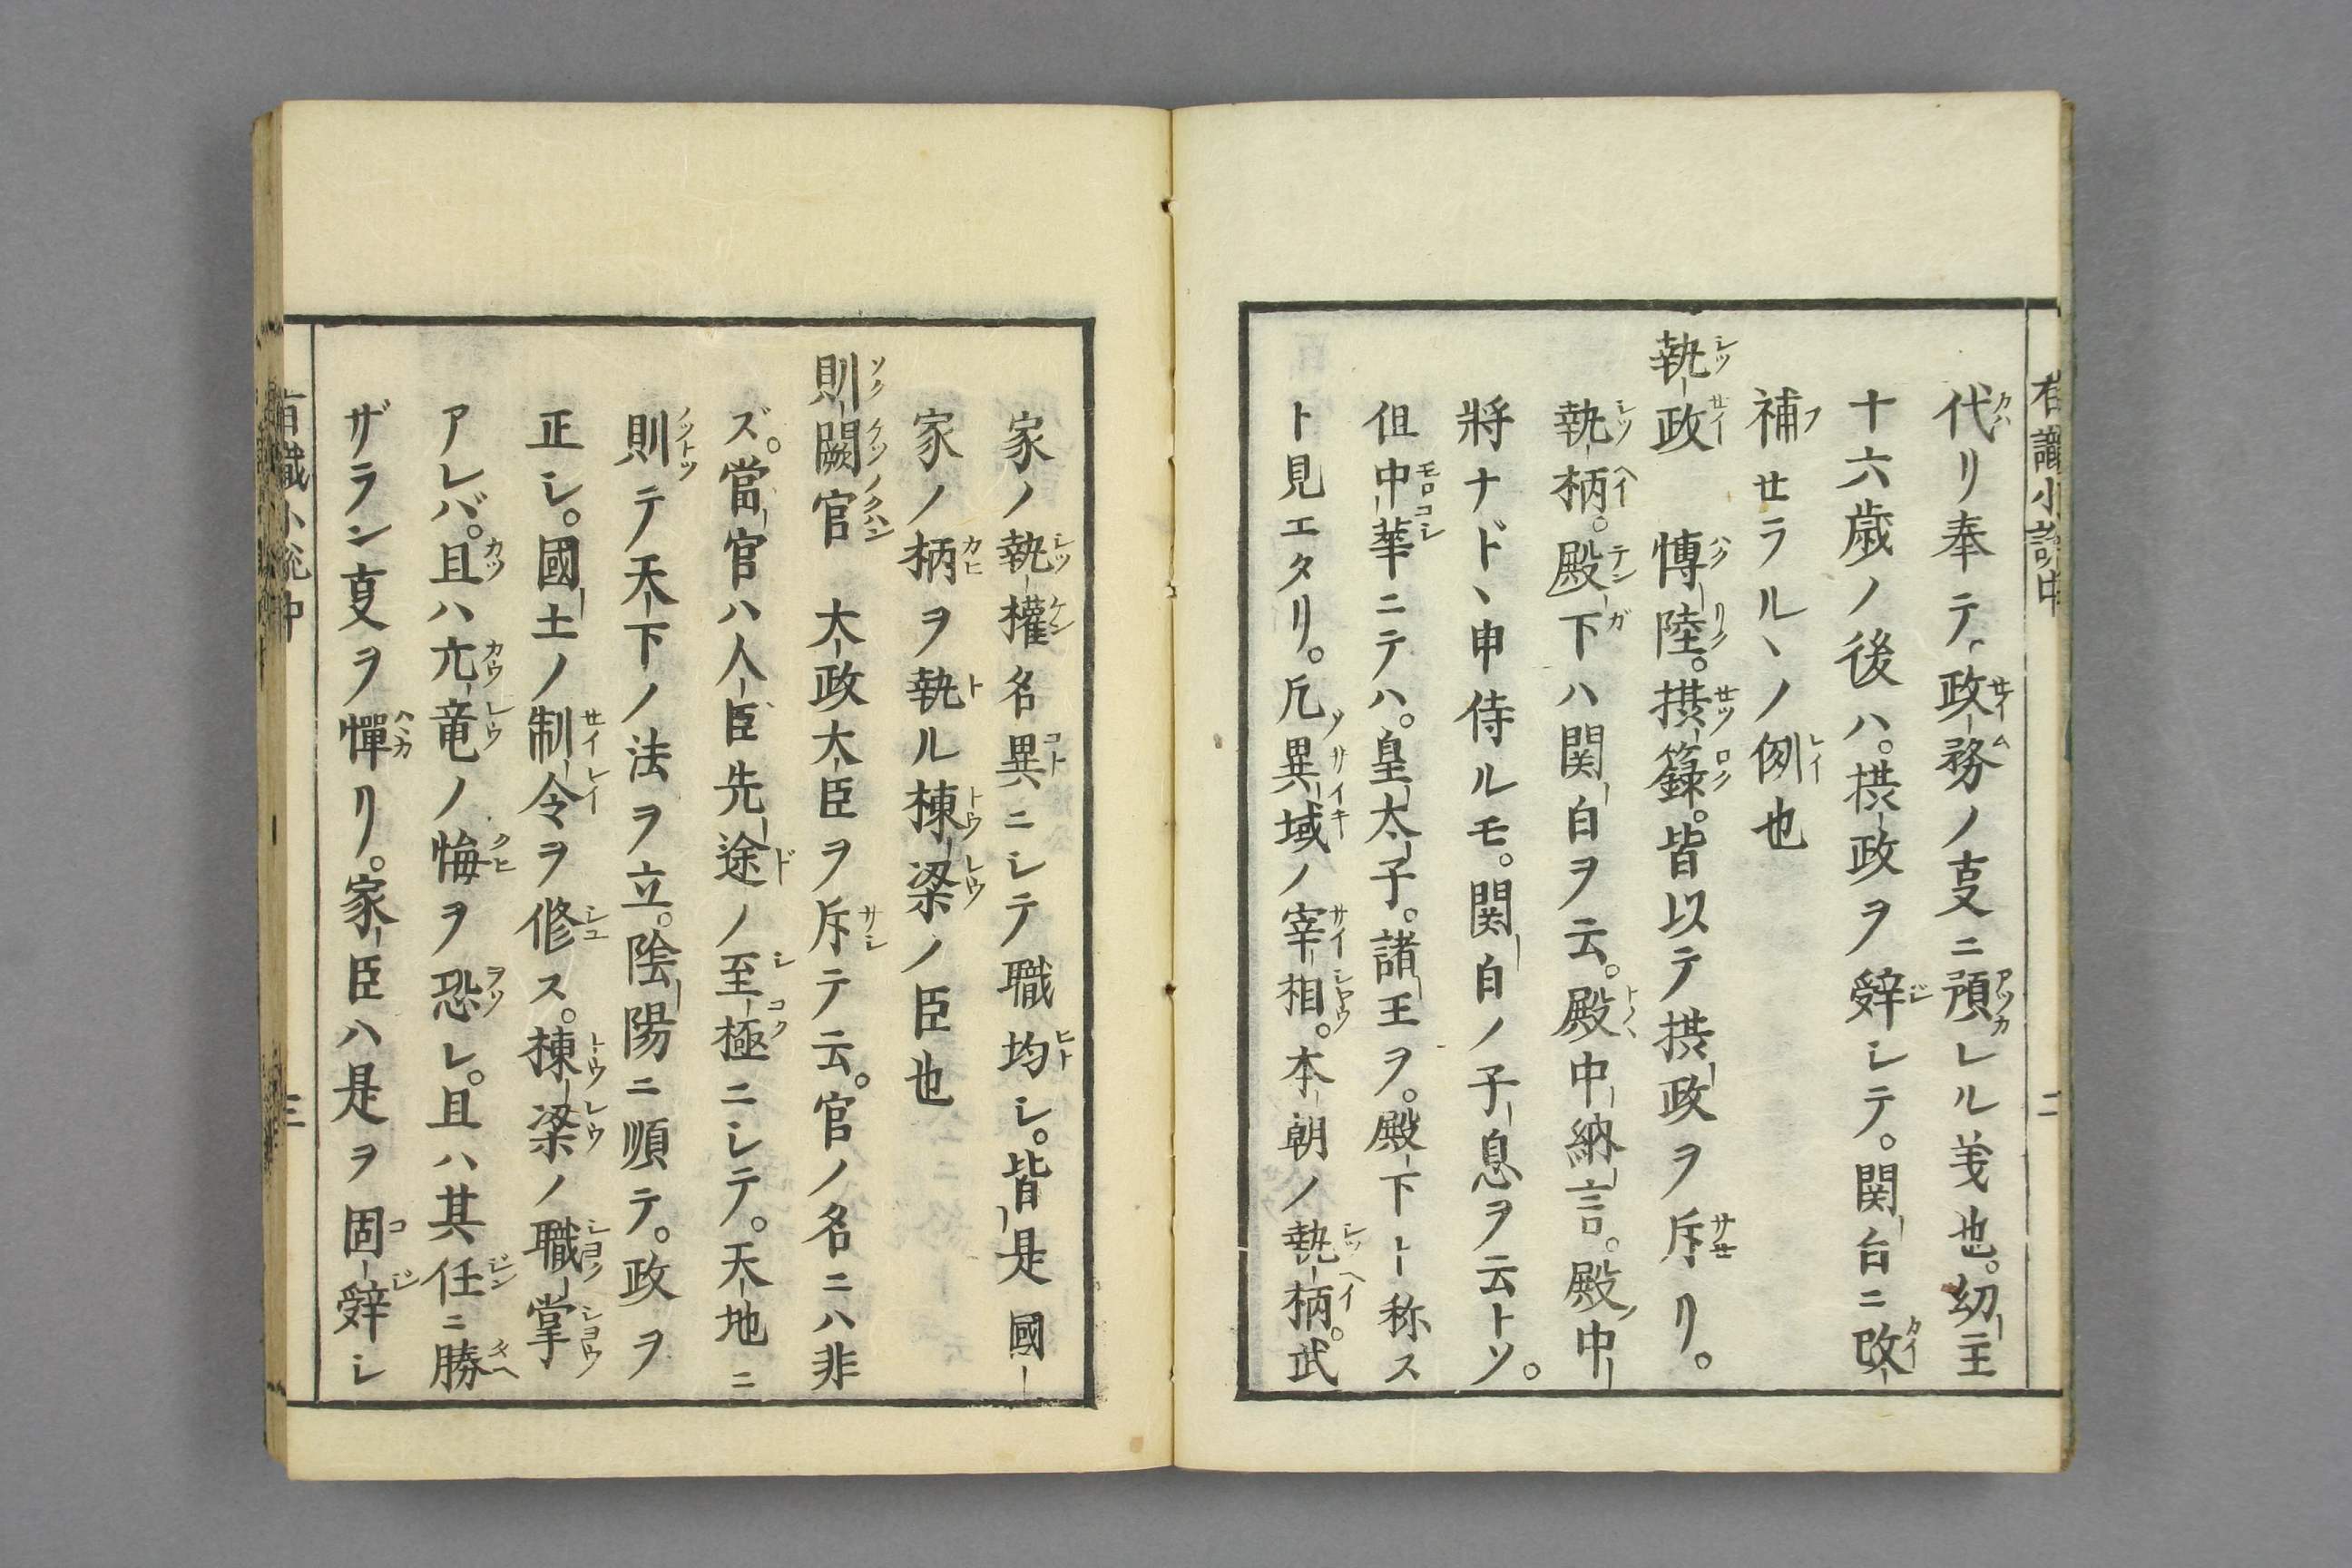 有識小説中
二
代リ奉テ政務ノ㕝ニ預レル義也。幼主
十六歳ノ後ハ。摂政ヲ辞シテ。関白ニ改
補セラルヽノ例也
執政 博陸。摂籙。皆以テ摂政ヲ斥リ。
執柄。殿下ハ関白ヲ云。殿中納言。殿ノ中
将ナドヽ申侍ルモ。関白ノ子息ヲ云トソ。
但中華ニテハ。皇太子。諸王ヲ。殿下ト称ス
ト見エタリ。凡異域ノ宰相。本朝ノ執柄。武
家ノ執權名異ニシテ職均シ。皆是國
家ノ柄ヲ執ル棟梁ノ臣也
則闕官 太政大臣ヲ斥テ云。官ノ名ニハ非
ズ。當官ハ人臣先途ノ至極ニシテ。天地ニ
則テ天下ノ法ヲ立。陰陽ニ順テ。政ヲ
正シ。國土ノ制令ヲ修ス。棟梁ノ職掌
アレバ。且ハ亢竜ノ悔ヲ恐レ。且ハ其任ニ勝
ザラン㕝ヲ憚リ。家臣ハ是ヲ固辞シ
有職小説中
三